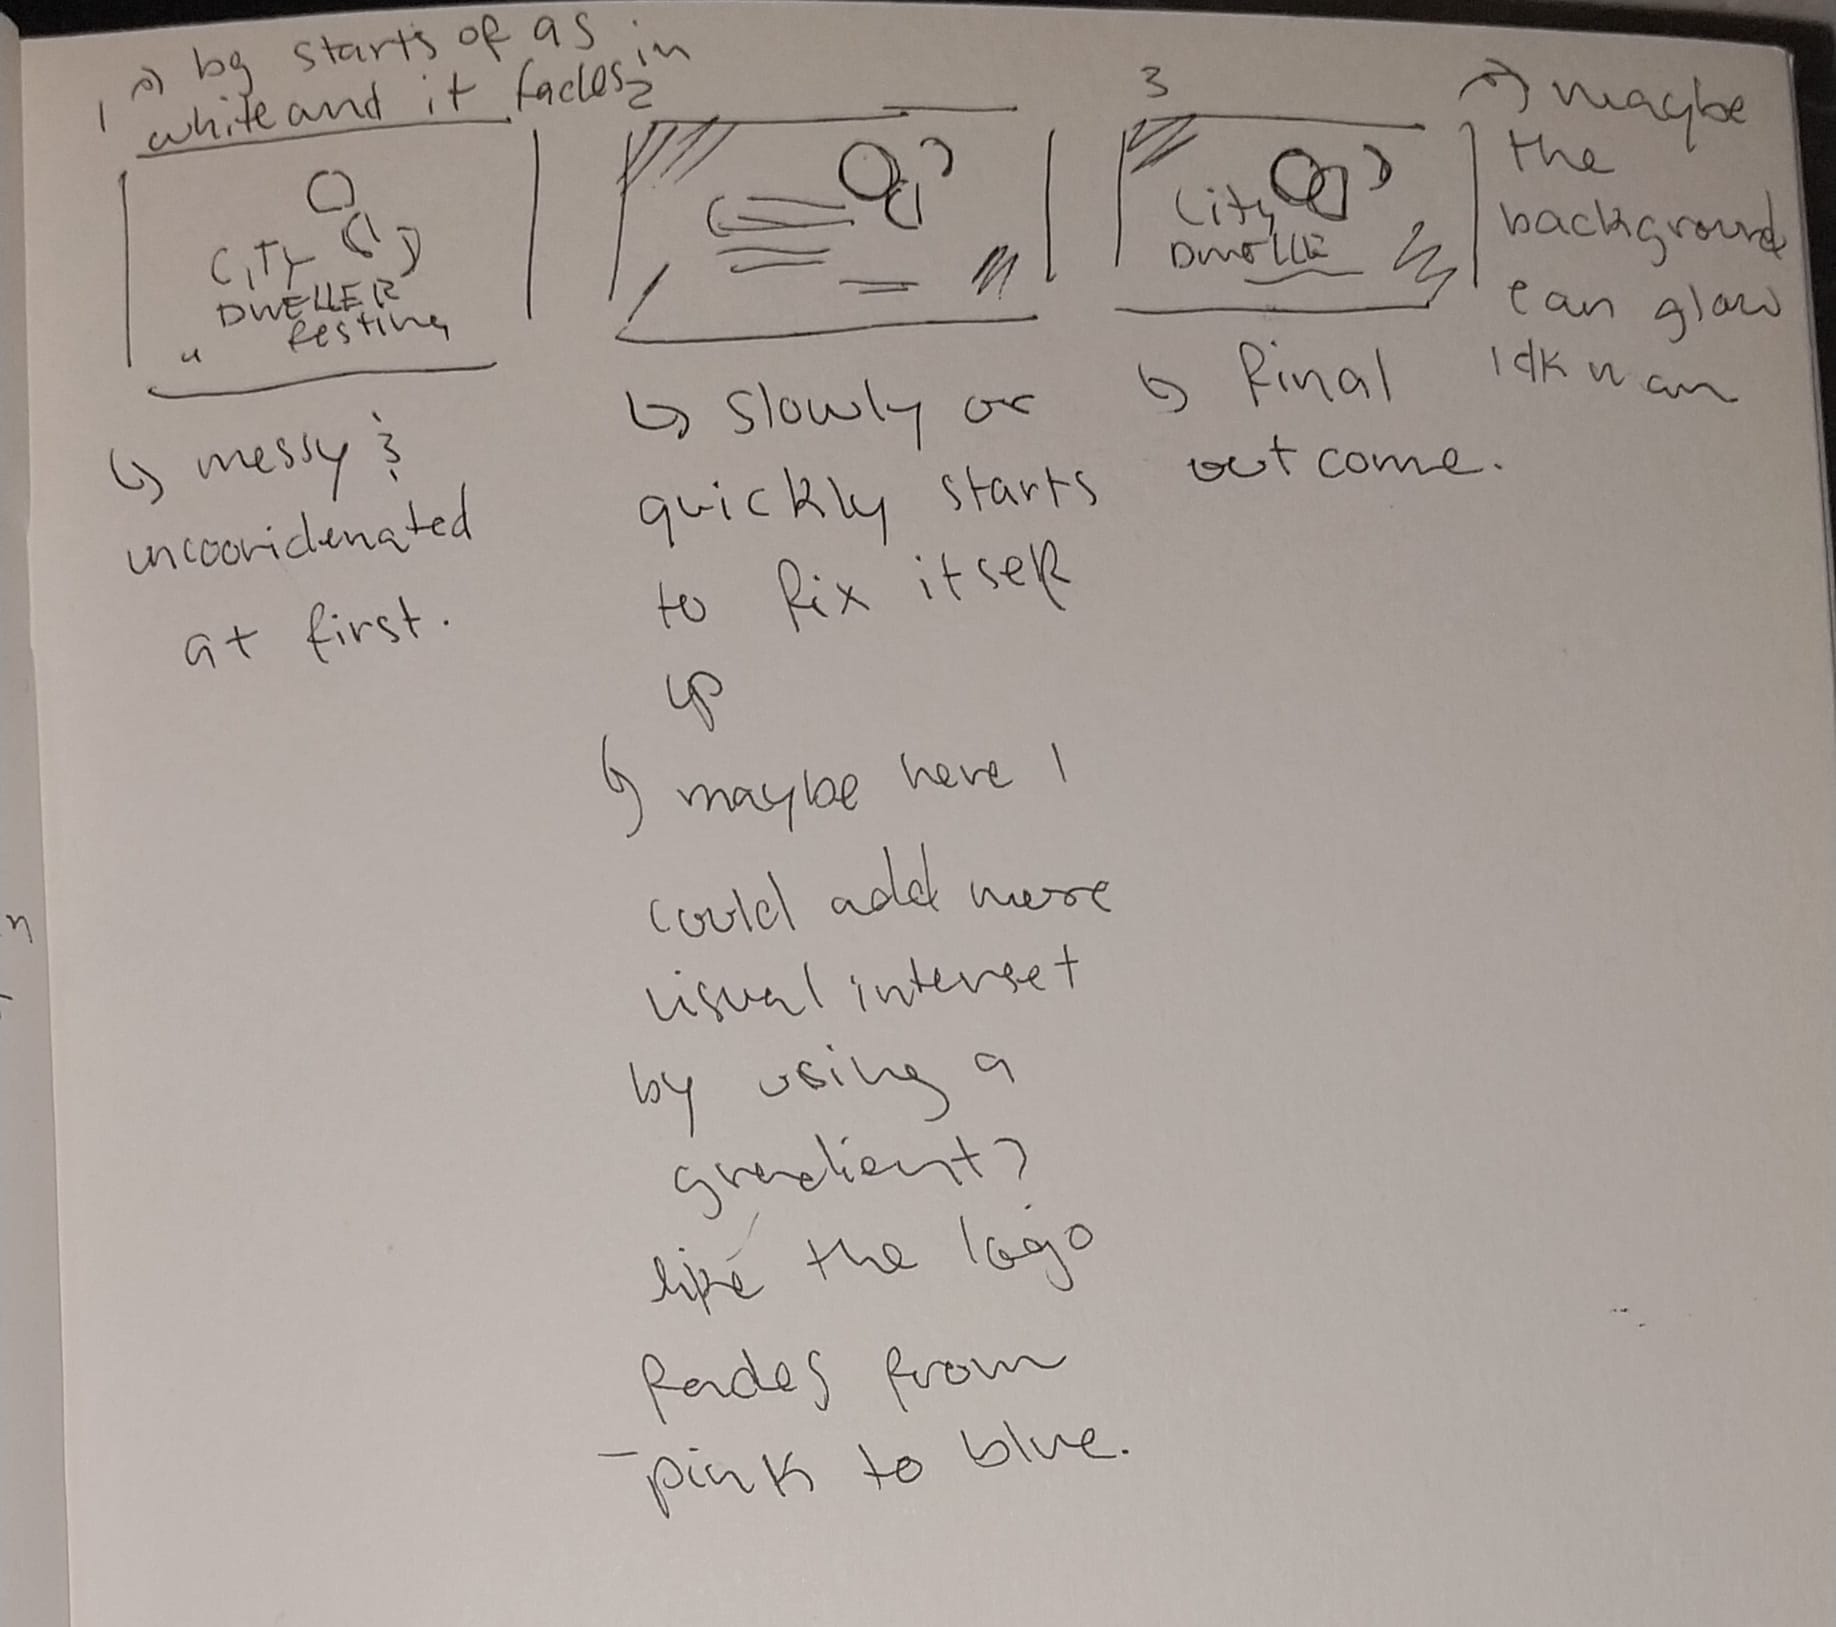 1 bg starts of as
white and it fades in
CITY
DWELLER
Resting
messy &
uncooridenated
at first.
2
slowly or
quickly starts
to fix itself
up
maybe here I
could add more
visual interset
by using a
gradient?
like the logo
fades from
pink to blue.
3
City
DWELLE
final
outcome.
maybe
the
background
can glow
idk man
n